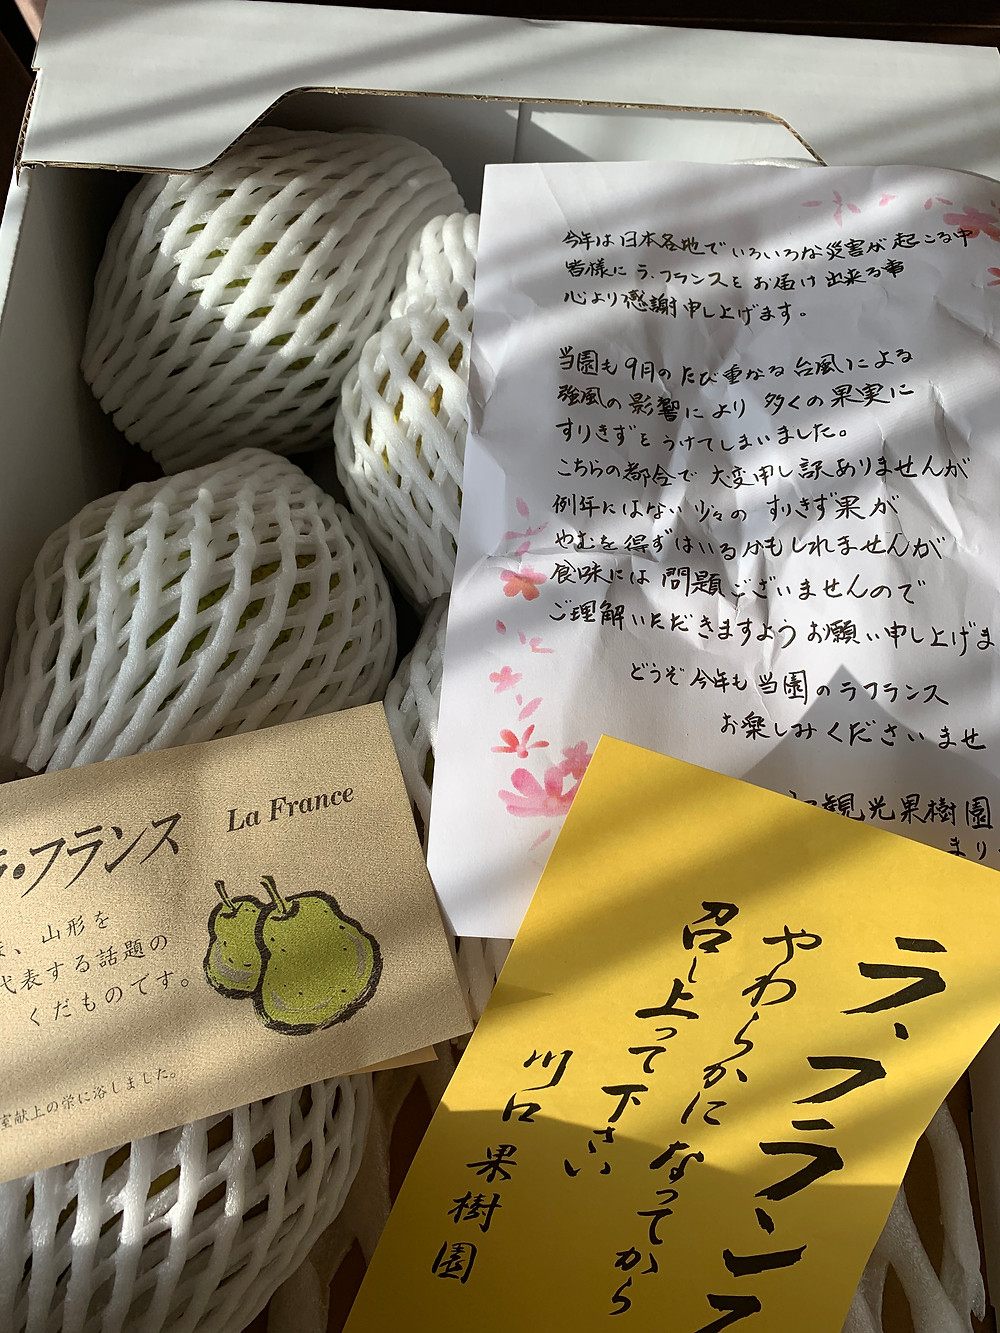 今年は日本各地でいろいろな災害が起こる中
皆様にラ・フランスをお届け出来る事
心より感謝申し上げます。
当園も9月のたび重なる台風による
強風の影響により多くの果実に
すりきずをうけてしまいました。
こちらの都合で大変申し訳ありませんが
例年にはない少々のすりきず果が
やむを得ずはいるかもしれませんが
食味には問題ございませんので
ご理解いただきますようお願い申し上げま
どうぞ今年も当園のラフランス
お楽しみくださいませ
観光果樹園
まり
ラ・フランス
La France
、山形を
代表する話題の
くだものです。
室献上の栄に浴しました。
ラ、フランス
やわらかになってから
召し上って下さい
川口果樹園